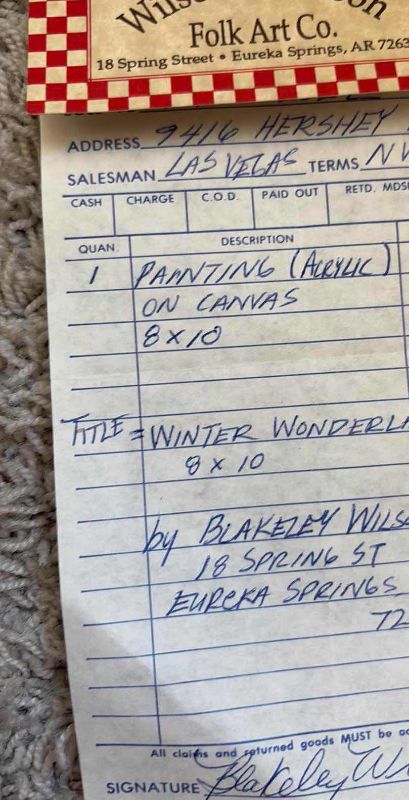 Folk Art Co.
18 Spring Street • Eureka Springs, AR 7263
ADDRESS 9416 HERSHEY
SALESMAN LAS VEGAS TERMS NV
CASH CHARGE C.O.D. PAID OUT RETD. MDSE
QUAN. DESCRIPTION
1 PAINTING (ACRYLIC)
ON CANVAS
8 x 10
TITLE = WINTER WONDERLA
8 x 10
by BLAKELEY WILS
18 SPRING ST
EUREKA SPRINGS
72
All claims and returned goods MUST be ac
SIGNATURE Blakeley Wi